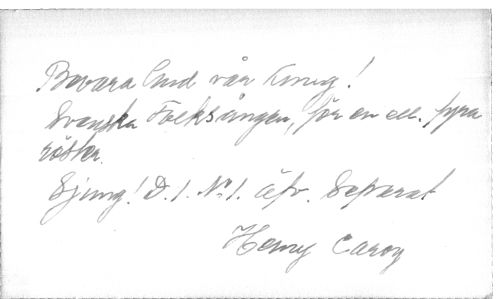 Bevara Gud vår Kung!
Svenska Folksången, för en ell. fyra
röster.
Sjung! D. 1. No 1. äfv. Separat
Henry Carey